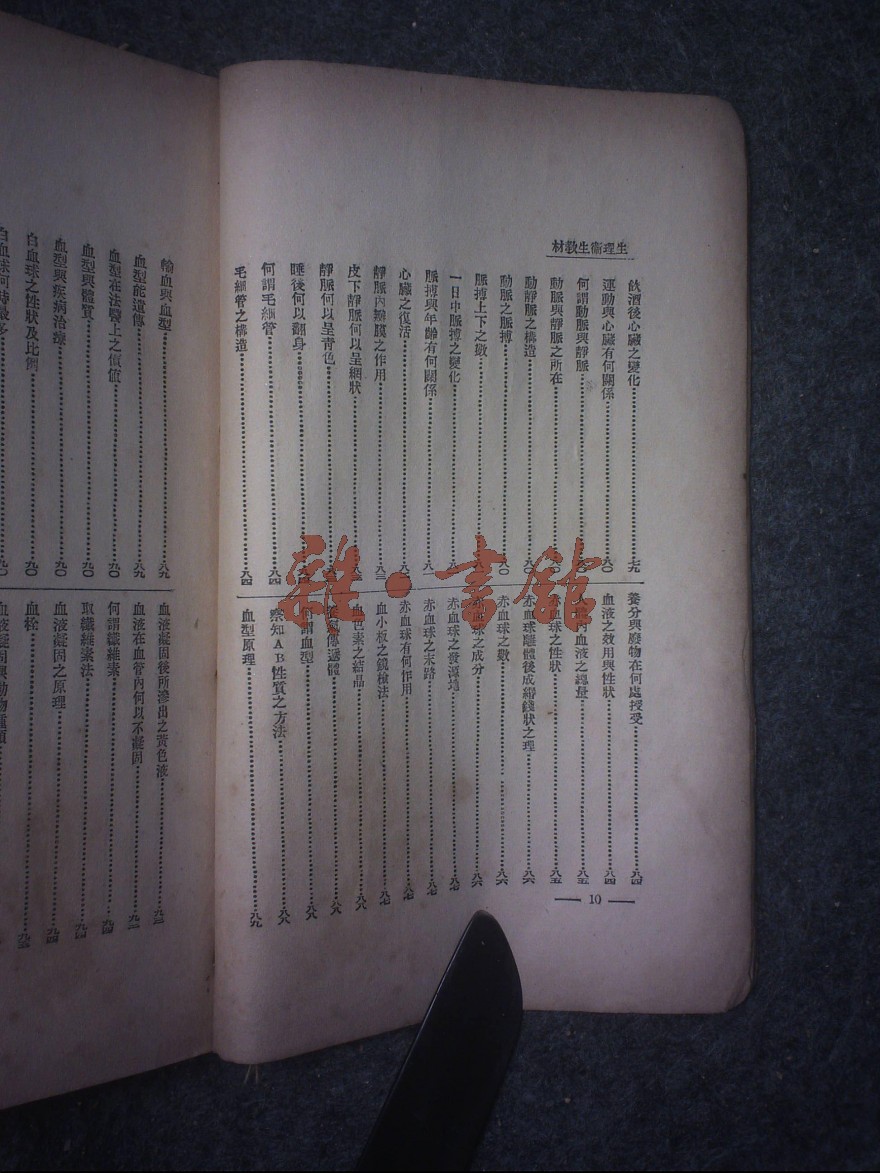 生理衞生敎材
飲酒後心臟之變化 七九
運動與心臟有何關係 八〇
何謂動脈與靜脈
動脈與靜脈之所在
動靜脈之構造
動脈之脈搏 八〇
脈搏上下之數
一日中脈搏之變化
脈搏與年齡有何關係 八一
心臟之復活
靜脈內瓣膜之作用
皮下靜脈何以呈網狀
靜脈何以呈青色
睡後何以翻身
何謂毛細管 八四
毛細管之構造 八四
養分與廢物在何處授受 八四
血液之效用與性狀 八四
人體內血液之總量 八五
赤血球之性狀 八五
赤血球離體後成緡錢狀之理 八六
赤血球之數 八六
赤血球之成分 八六
赤血球之發源地 八七
赤血球之末路 八七
赤血球有何作用 八七
血小板之鏡檢法 八七
血色素之結晶 八八
八八
何謂血型 八八
察知AB性質之方法 八八
血型原理 八九
10
輸血與血型 八九
血型能遺傳 八九
血型在法醫上之價値 九〇
血型與體質 九〇
血型與疾病治療 九〇
白血球之性狀及比例 九〇
白血球何時最多 九〇
血液凝固後所滲出之黃色液 九三
血液在血管內何以不凝固
何謂纖維素
取纖維素法 九四
血液凝固之原理 九四
血栓
血液凝固與動物種類
雜·書館